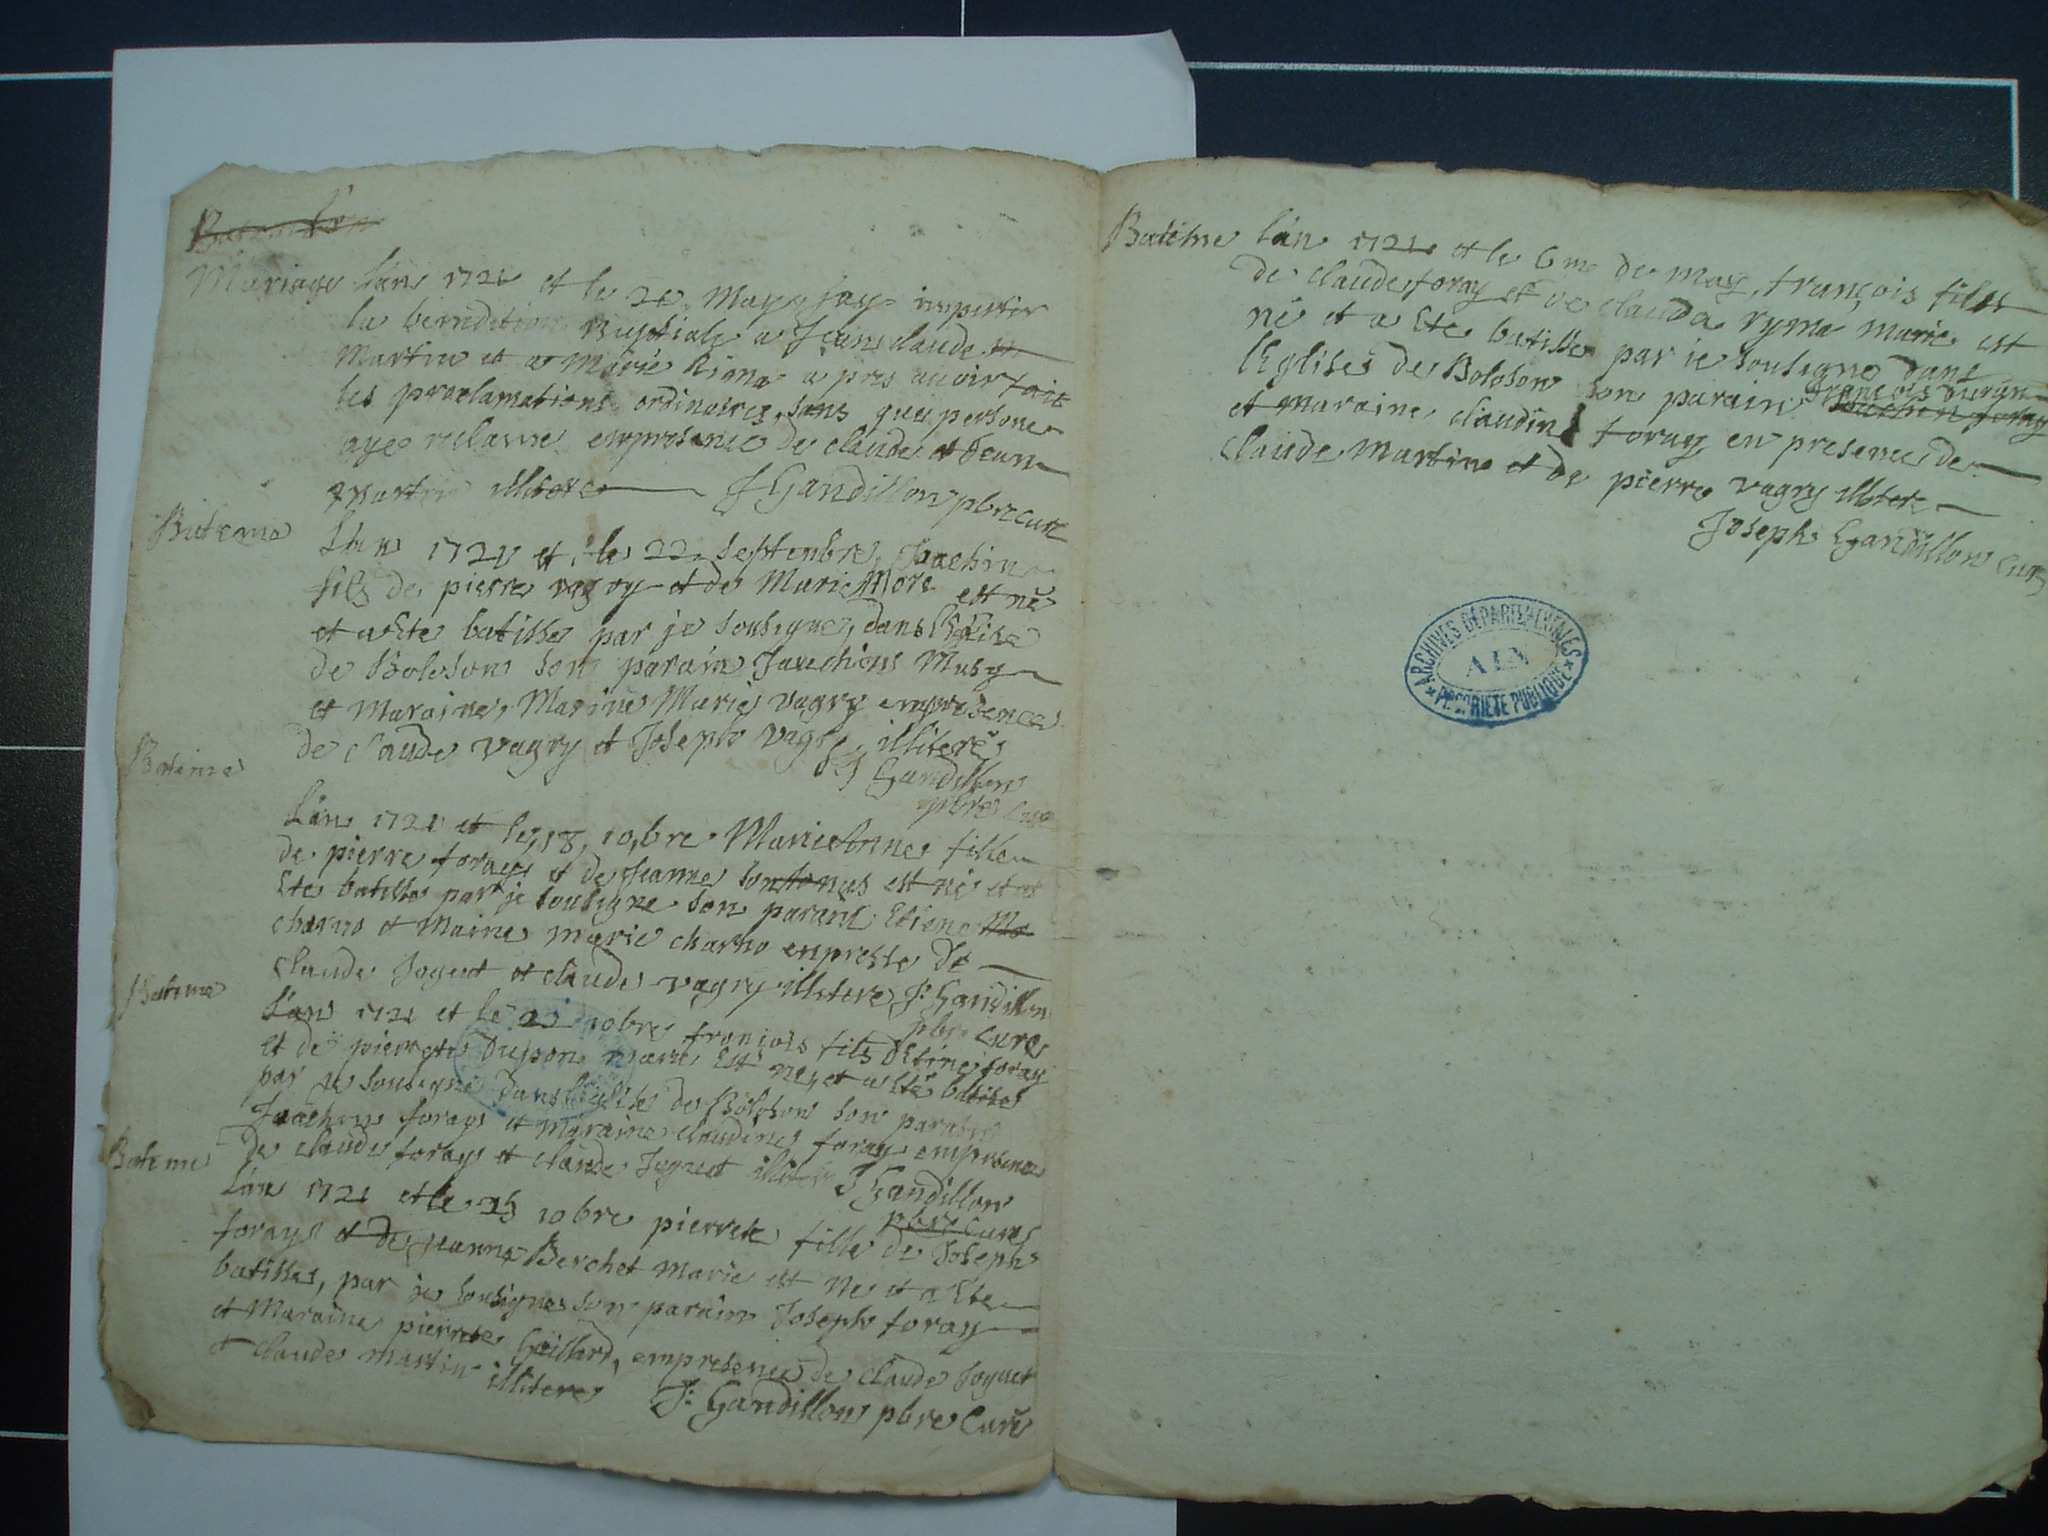 Mariage Lan 1721 et le 20 May jay imparti
la benediction nuptiale a Jean claude
Martin et a Marie Rion apres avoir fait
les proclamations ordinaires, sans que persone
aye reclame enpresence de claude et Jean
Martin illitere J Gandillon pbre cure
Bateme Lan 1721 et le 22 septembre, Joachin
fils de pierre vagry et de Marie More est né
et a este batisse par je sousigne, dans l'Eglise
de Boloson son parain Joachins Musy
et maraine, Marine Marie vagry enpresence
de Claude vagry et Joseph vagry illiteres
J Gandillon
pbre Cure
Bateme
Lan 1721 et le, 18, 10,bre Marieanne fille
de pierre foray et de Jeanne est né et a
Ete batisse par je sousigne son parain Etiene
charno et Maine marie charno enpresse de
claude Joguet et claude vagry illitere J: Gandillon
pbre Cure
Bateme Lan 1721 et le 10bre francois fils detine foray
et de pierrete Dupon marie est né, et a Eté batise
par je sousigne dans leglise de Boloson son parain
Joachins foray et Maraine claudine foray enpresence
de claude foray et claude Joguet illitere J Gandillon
pbre Cure
Bateme Lan 1721 et le 25 10bre pierrete fille de Joseph
foray et de jeanne Berchet marie est né et a Ete
batisse, par je sousigne son parain Joseph foray
et Maraine pierrete Gaillard, enpresence de claude Joguet
et claude martin illitere J: Gandillon pbre Curé
Bateme Lan 1721 et le 6me de may, françois fils
de claude foray et de clauda ryme marie est
né et a Ete batisse par je sousigne dans
l'Eglise de Boloson son parain françois
et maraine claudine foray en presence de
claude martin et de pierre vagry illitere
Joseph Gandillon Cure
ARCHIVES DÉPARTEMENTALES
AIN
PROPRIÉTÉ PUBLIQUE